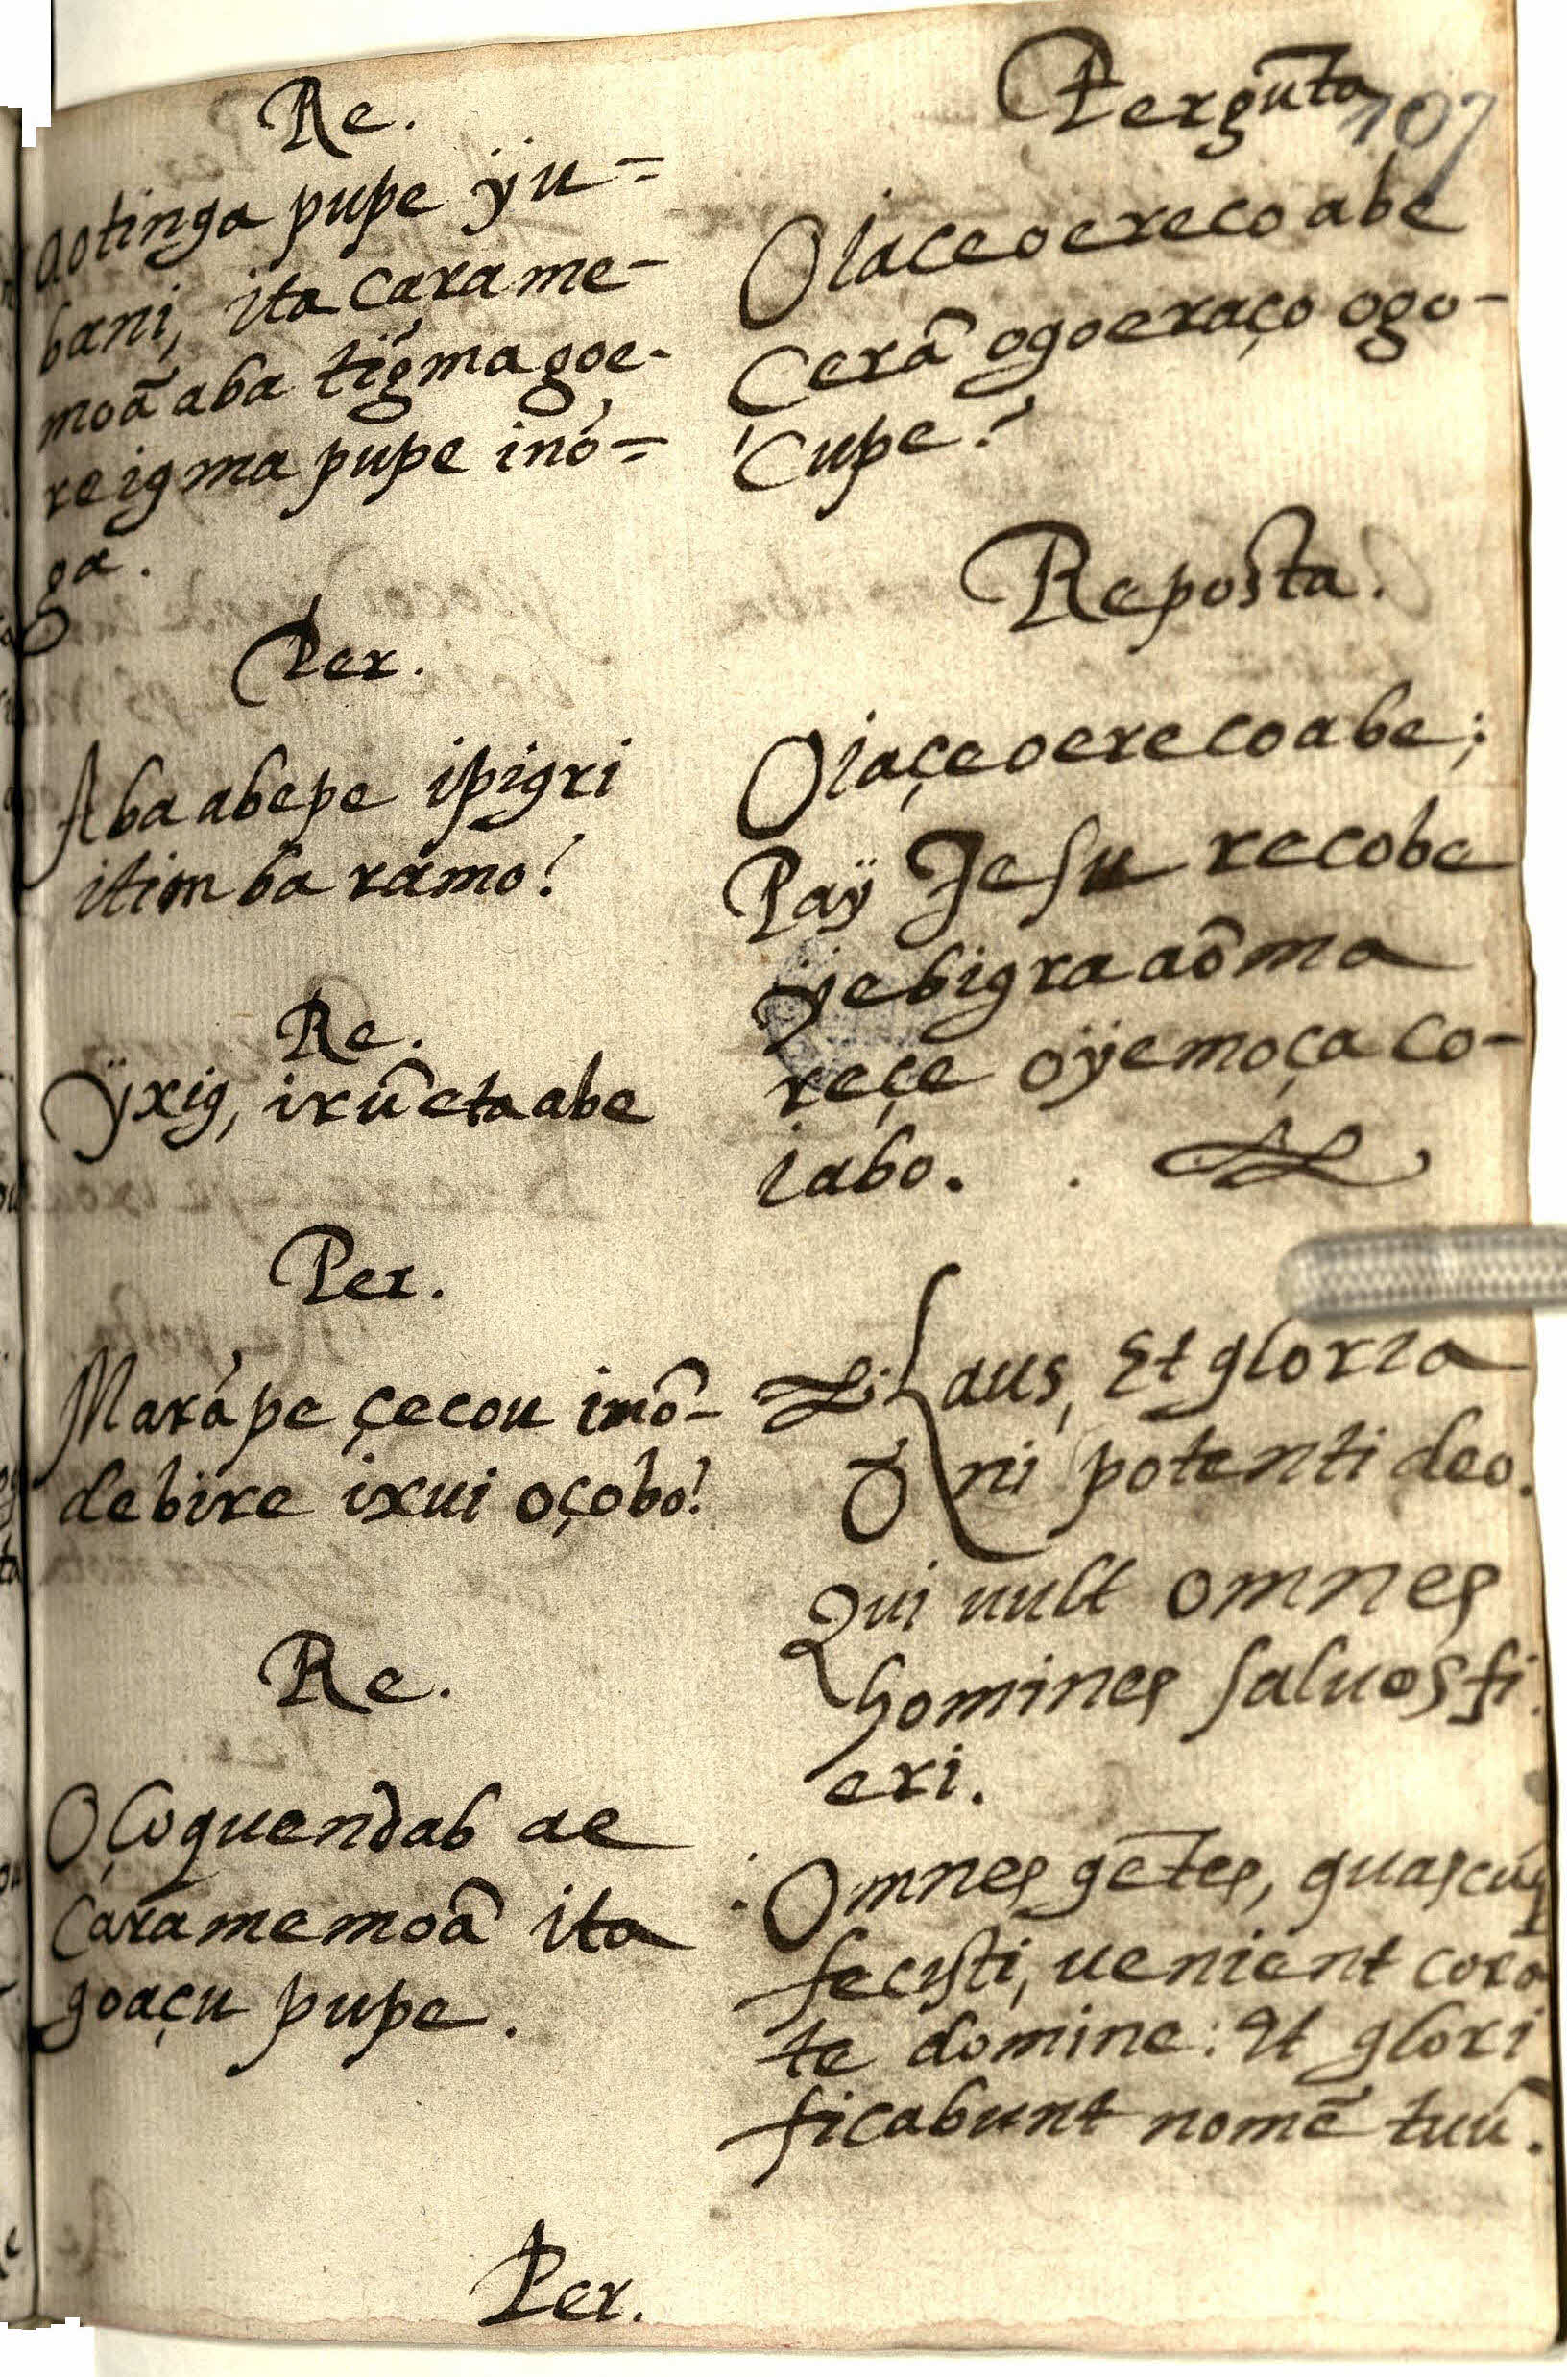 Re.
Aotinga pupe ÿu=
bani, ita carame-
moã aba tïgma goe-
reigma pupe inó=
ga.
Per.
Aba abepe ipigri
itimbaramo?
Re.
ÿxig, irũeta abe
Per.
Marápe çecou imõ-
debire ixui oçobo?
Re.
Oçoquendab ae
Caramemoã ita
goaçu pupe.
Per.
Pergũta
107
Oiaceoereco abe
Cerã ogoeraço ogo-
Cupe?
Reposta.
Oiaçeoerecoabe;
Paÿ Jesu recobe
ÿebigra aõma
reçe oÿemoçaco-
iabo.
Laus, Et gloria
Oni potenti deo.
Qui uult omnes
homines saluos fi
eri.
Omnes gẽtes, quascũq
fecisti, uenient cora
te domine: Et glori
ficabunt nomẽ tuũ.